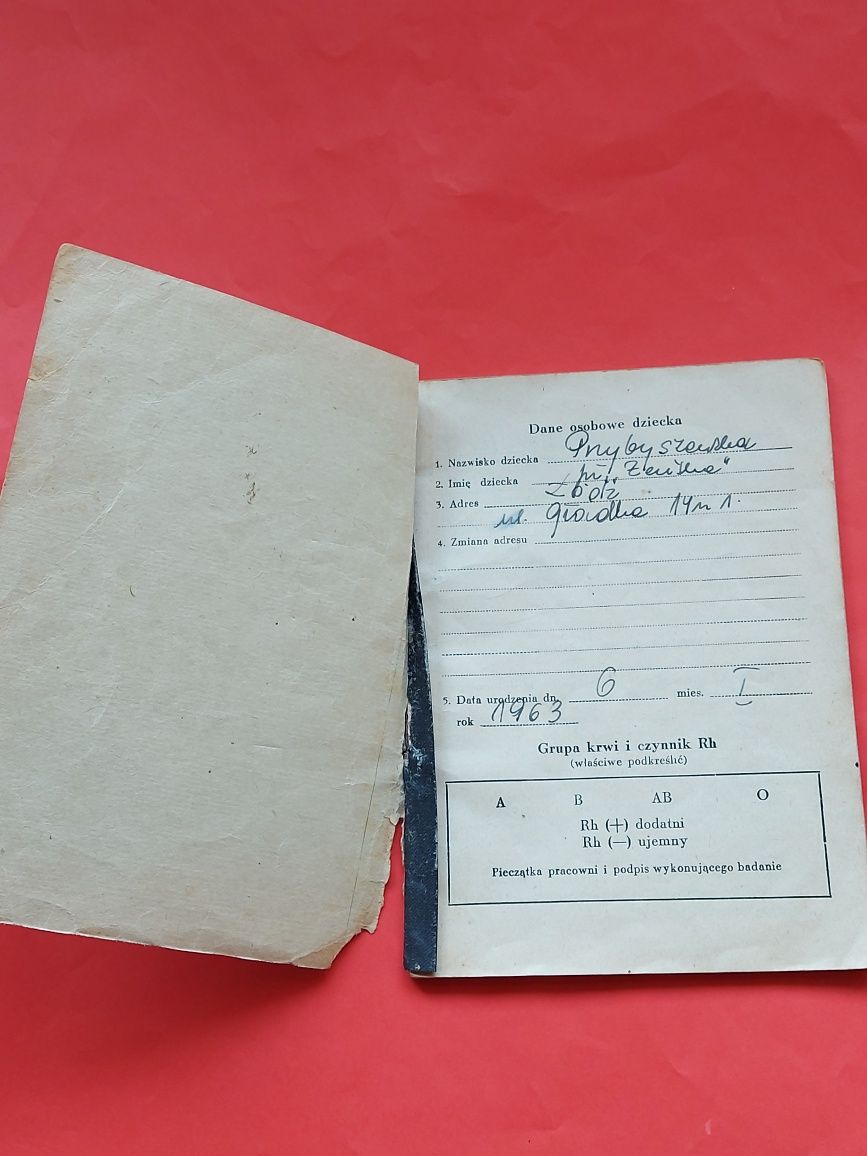 Dane osobowe dziecka
1. Nazwisko dziecka Przybyszewska
2. Imię dziecka
3. Adres
ul. 14 m 1.
4. Zmiana adresu
5. Data urodzenia dn. 6 mies. I
rok 1963
Grupa krwi i czynnik Rh
(właściwe podkreślić)
A B AB O
Rh (+) dodatni
Rh (—) ujemny
Pieczątka pracowni i podpis wykonującego badanie